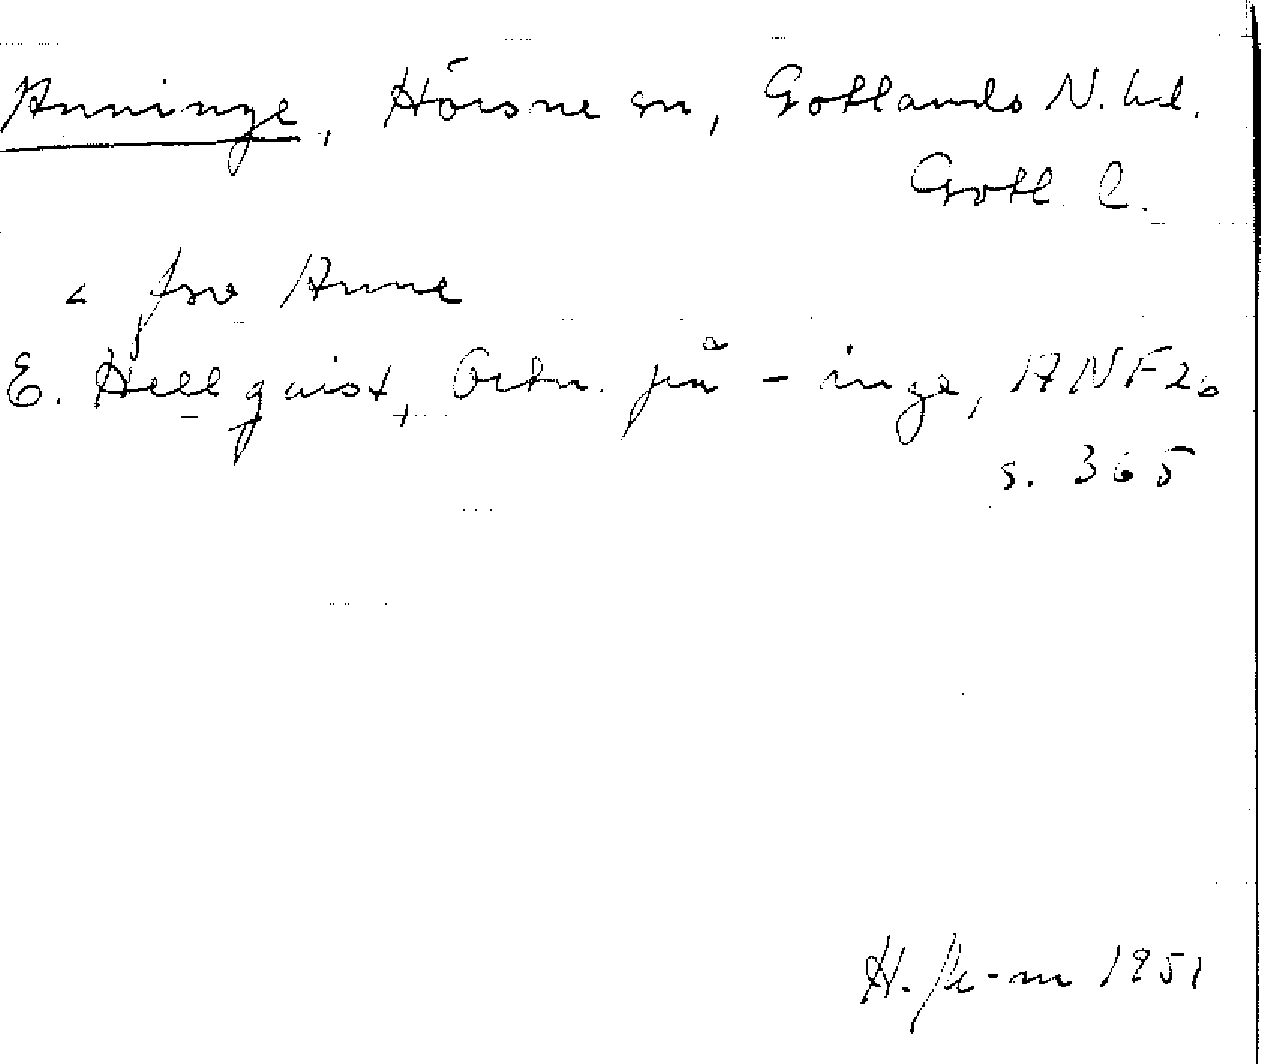 Anninge, Hörsne sn, Gotlands N. hd.
Gotl. l.
< fsv Anne
E. Hellquist, Ortn. på -inge, ANF 20
s. 365
H. St-m 1951